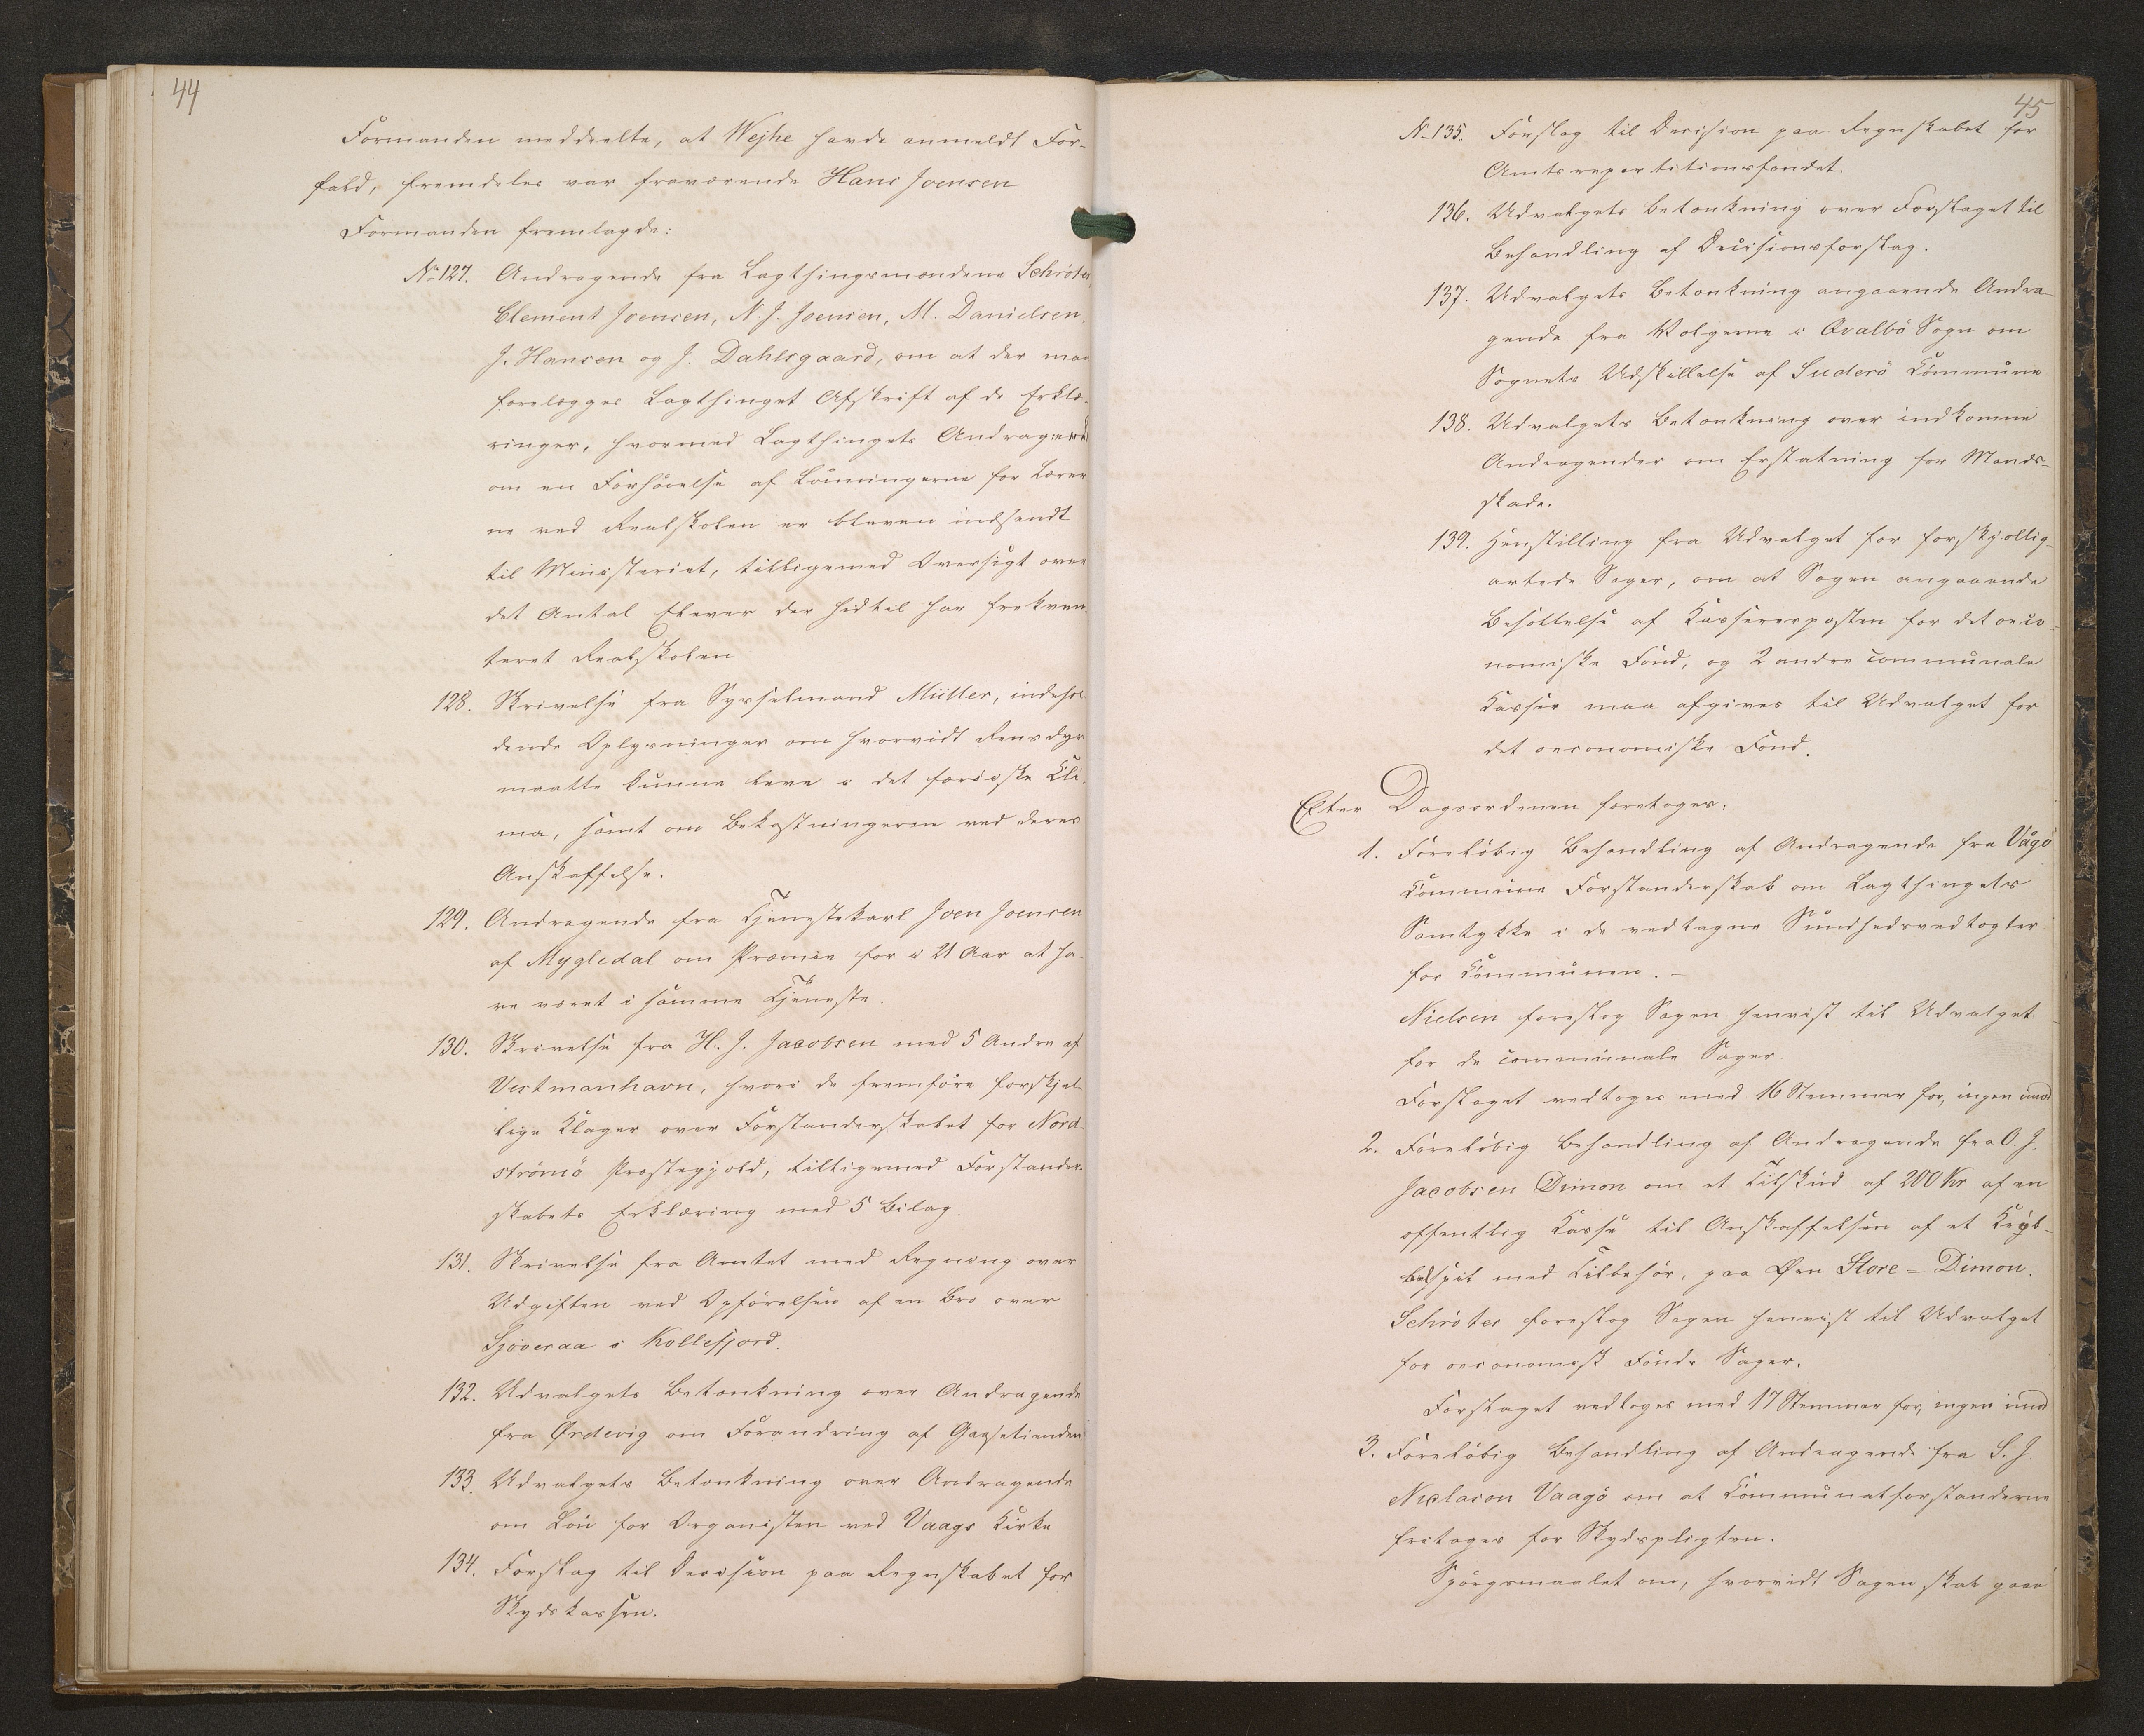 44
Formanden meddeelte, at Wejhe havde anmeldt For-
fald, fremdeles var fraværende Hans Joensen
Formanden fremlagde:
No 127. Andragende fra Lagthingsmændene Schröter
Clement Joensen, N. J. Joensen, M. Danielsen,
J. Hansen og J. Dahlsgaard, om at der maa
forelægges Lagthinget Afskrift af de Erklæ-
ringer, hvormed Lagthingets Andragend
om en Forhöielse af Lönningerne for Lærer
ne ved Realskolen er bleven indsendt
til Ministeriet, tilligemed Oversigt over
det Antal Elever der hidtil har frekven-
teret Realskolen
128. Skrivelse fra Sysselmand Müller, indehol
dende Oplysninger om hvorvidt Rensdyr
maatte kunne leve i det færöiske Kli-
ma, samt om Bekostningerne ved deres
Anskaffelse.
129. Andragende fra Tjenestekarl Joen Joensen
af Mygledal om Præmie for i 21 Aar at ha-
ve været i samme Tjeneste.
130. Skrivelse fra H. J. Jacobsen med 5 Andre af
Vestmanhavn, hvori de fremföre forskjel-
lige Klager over Forstanderskabet for Nord-
strömö Præstegjæld, tilligemed Forstander-
skabets Erklæring med 5 Bilag.
131. Skrivelse fra Amtet med Regning over
Udgiften ved Opförelsen af en Bro over
Sjöveraa i Kollefjord.
132. Udvalgets Betænkning over Andragende
fra Ørdevig om Forandring af Gaasetienden
133. Udvalgets Betænkning over Andragende
om Lön for Organisten ved Vaags Kirke
134. Forslag til Decision paa Regnskabet for
Skydskassen.
45
No 135. Forslag til Decision paa Regnskabet for
Amtsrepartitionsfondet.
136. Udvalgets Betænkning over Forslaget til
Behandling af Decisionsforslag.
137. Udvalgets Betænkning angaaende Andra-
gende fra Vælgerne i Qvalbö Sogn om
Sognets Udskillelse af Suderö Kommune
138. Udvalgets Betænkning over indkomne
Andragender om Erstatning for Mands-
skade.
139. Henstilling fra Udvalget for forskjellig-
artede Sager, om at Sagen angaaende
Besættelse af Kassererposten for det oeco-
nomiske Fond, og 2 andre communale
Kasser maa afgives til Udvalget for
det oeconomiske Fond.
Efter Dagsordenen foretoges:
1. Forelöbig Behandling af Andragende fra Vågö
Kommune Forstanderskab om Lagthingets
Samtykke i de vedtagne Sundhedsvedtægter
for Kommunen. –
Nielsen foreslog Sagen henvist til Udvalget
for de communale Sager.
Forslaget vedtoges med 16 Stemmer for, ingen imod
2. Forelöbig Behandling af Andragende fra O. J.
Jacobsen Dimon om et Tilskud af 200 Kr af en
offentlig Kasse til Anskaffelsen af et
med Tilbehör, paa Øen Store-Dimon.
Schröter foreslog Sagen henvist til Udvalget
for oeconomisk Fonds Sager.
Forslaget vedtoges med 17 Stemmer for, ingen imod
3. Forelöbig Behandling af Andragende fra S. J.
Niclasen Vaagö om at Communalforstanderne
fritages for Skydspligten.
Spörgsmaalet om, hvorvidt Sagen skal gaae